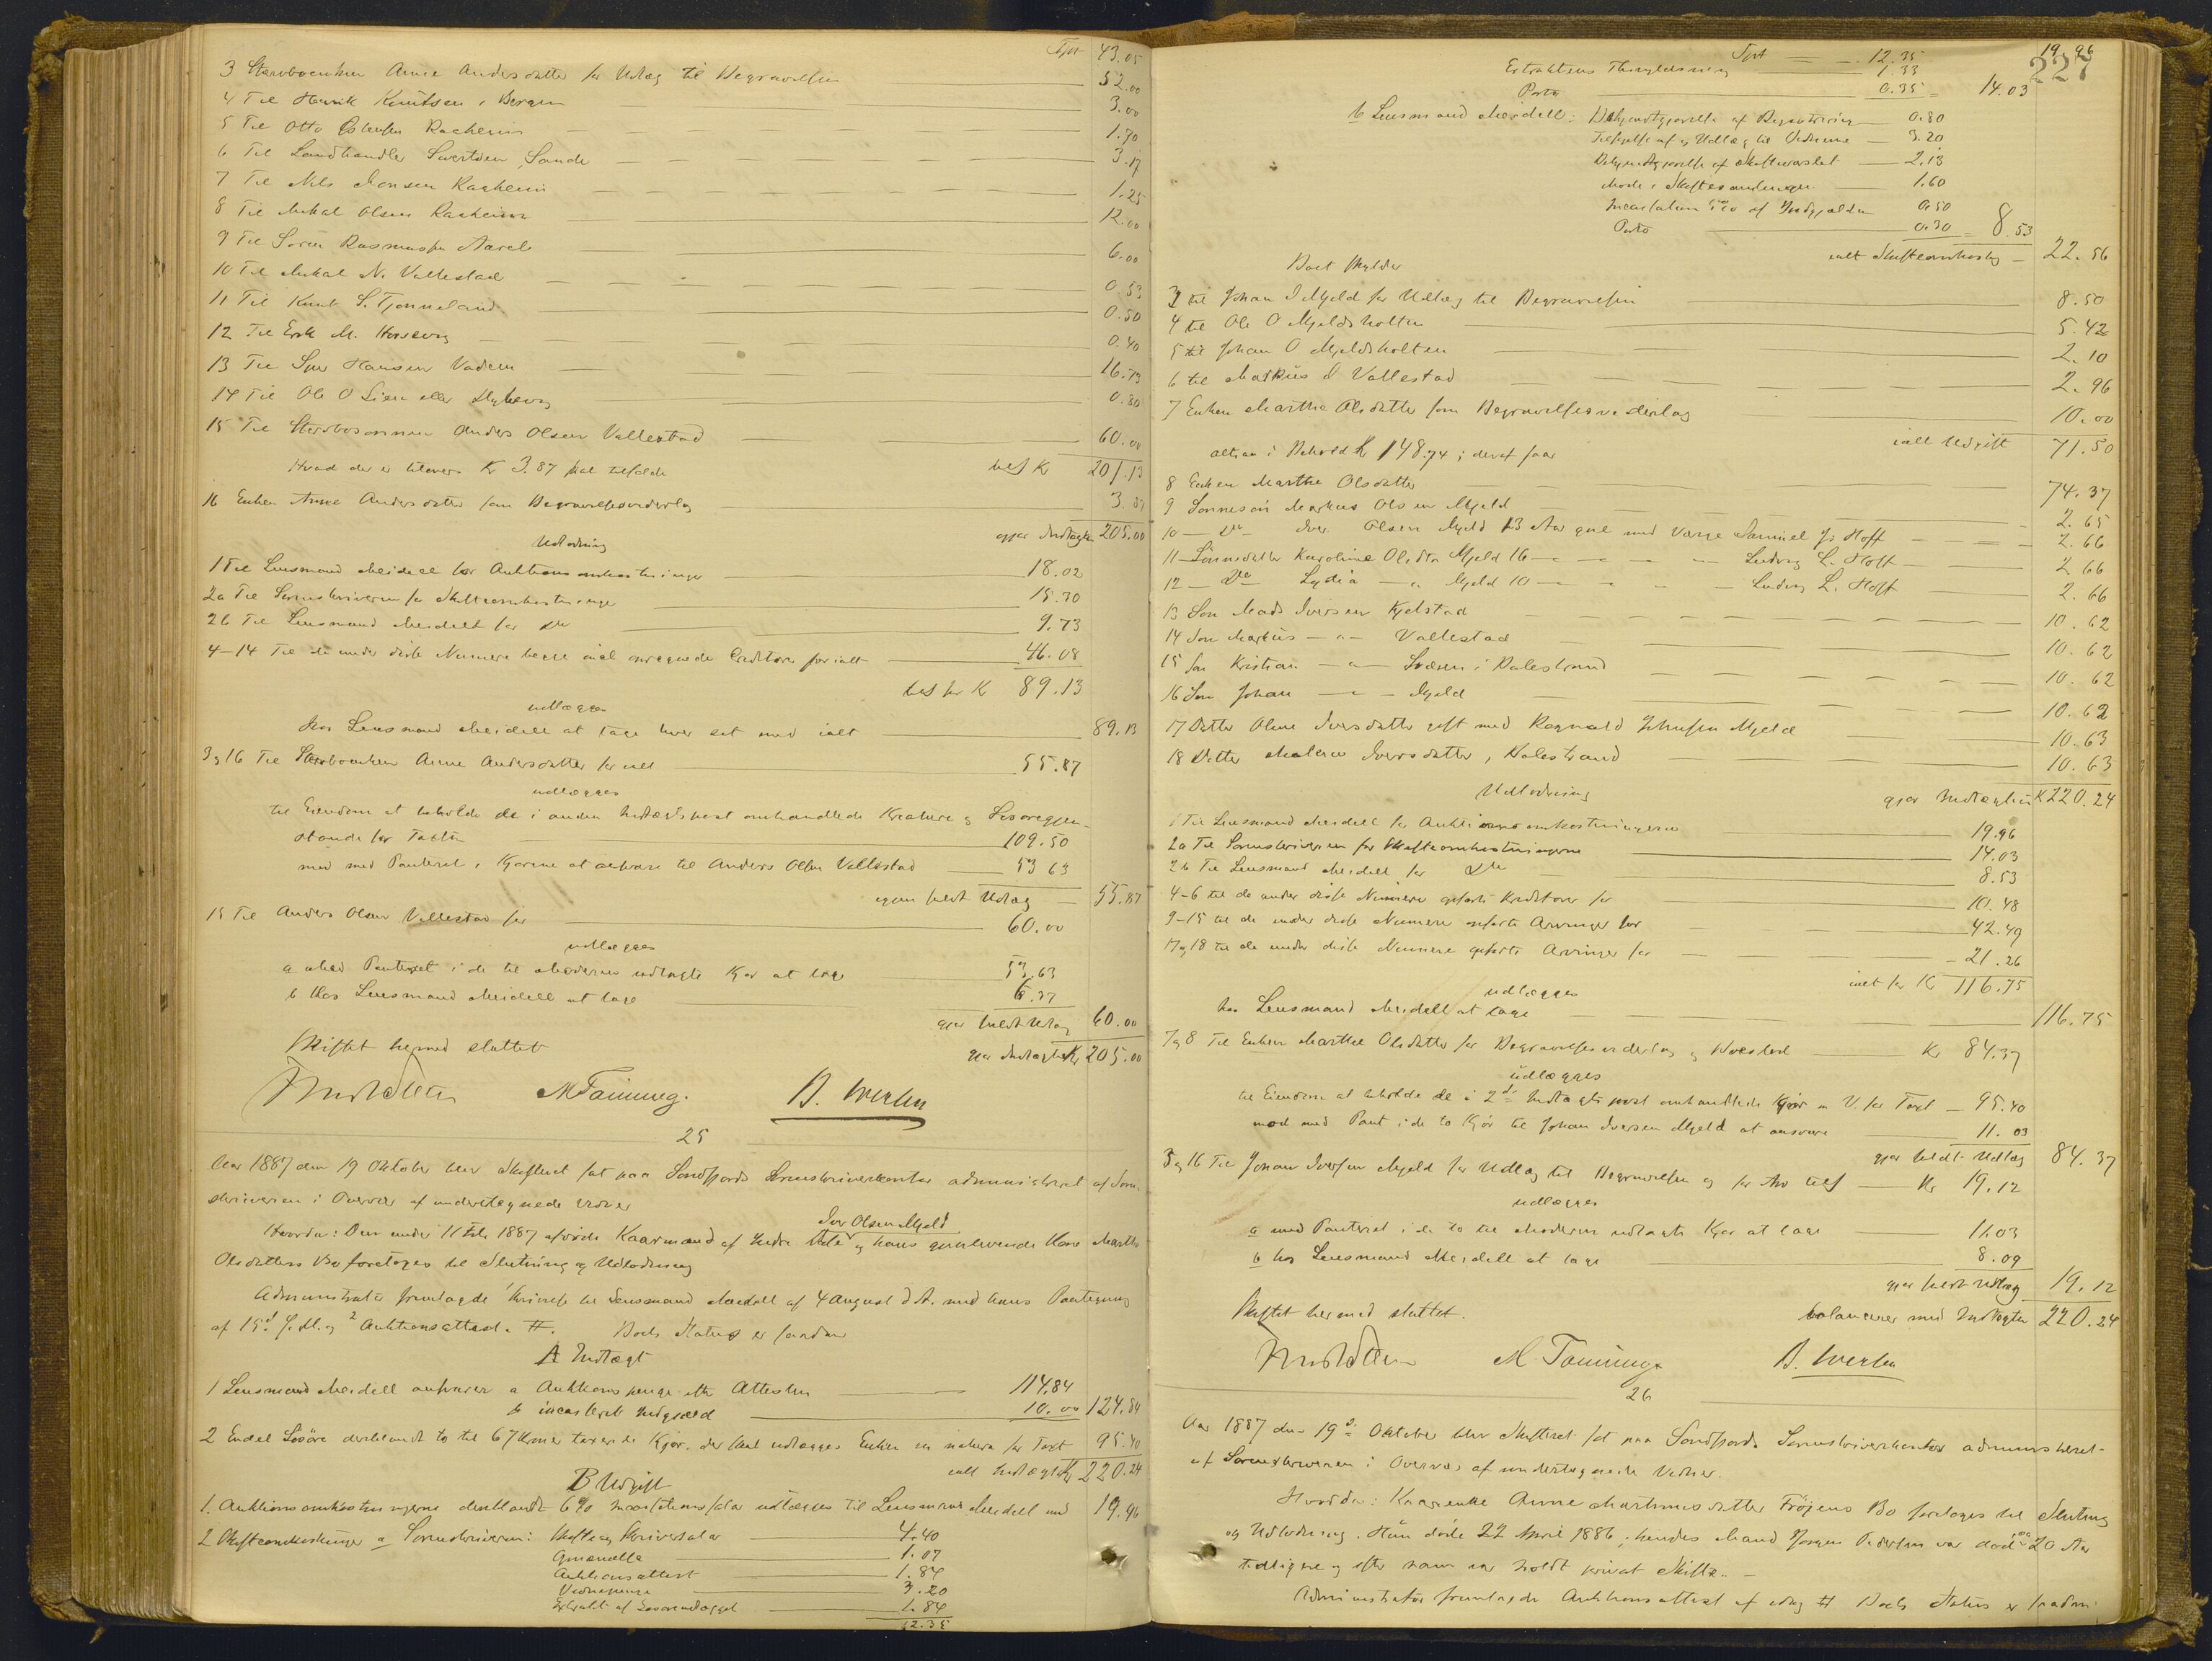 Tpt 43.05
3 Stervboenken Anne Andersdatter for Udlæg til Begravelsen 52.00
4 Til Henrik Knutsen i Bergen 3.00
5 Til Otto Racheim 1.70
6 Til Landhandler Svertsen, Sande 3.17
7 Til Nils Monsen Racheim 1.25
8 Til Mikal Olsen Racheim 12.00
9 Til Søren Rasmussen 6.00
10 Til Mikal N. Vallestad 0.53
11 Til Knut S. Tjønneland 0.50
12 Til Erik M. 0.40
13 Til Hansen Vadem 16.73
14 Til Ole O Lien eller 0.80
15 Til Stervbosønnen Anders Olsen Vallestad 60.00
Hvad der er tilovers Kr 3.87 skal tilfalde tils Kr 201.13
16 Enken Anne Andersdatter som Begravelsesvederlag 3.87
Udlodning
gjør Indtægten 205.00
1 Til Lensmand Meidell for Auktionsomkostninger 18.02
2a Til Sorenskriveren for Skifteomkostninger 15.30
2b Til Lensmand Meidell for Do 9.73
4-14 Til de under disse Numere begge incl opregnede Creditorer for ialt 46.08
tils for Kr 89.13
udlægges
hos Lensmand Meidell at tage hver sit med ialt 89.13
3 og 16 Til Stervboenken Anne Andersdatter for tils 55.87
udlægges
til Eiendom at beholde de i anden Indtægtspost omhandlede Kreature og Løsøregjen-
stande for Taxten 109.50
mod med Panteret i Kjørene at afbære til Anders Olsen Vallestad 53 63
igjen hendt Udlæg 55.87
15 Til Anders Olsen Vallestad for 60.00
udlægges
a Med Panteret i de til Moderen udlagte Kjør at tage 53.63
b Hos Lensmand Meidell at tage 6.37
gjør heldt Udlæg 60.00
Skiftet hermed sluttet
gjør Indtægten Kr 205.00
M Tønning. B. Werlen
25
Aar 1887 den 19 Oktober blev Skifteret sat paa Søndfjords Sorenskriverkontor administreret af Soren-
skriveren i Overvær af undertegnede Vidner
Iver Olsen Mjeld
Hvorda: Den under 11 Feb. 1887 afdøde Kaarmand af Indre Dale og hans gjenlevende Kone Marthe
Olsdatters Bo foretoges til Slutning og Udlodning
Administrator fremlagde Skrivelse til Lensmand Meidell af 4 August d A. med hans Paategning
af 15d. s. M. og 2 Auktionsattest. #. Boets Status er saadan
A Indtægt
1 Lensmand Meidell anfører a Auktionspenge efter Attesten 114.84
b incasseret Indgjæld 10.00 124.84
2 Endel Løsøre deriblandt to til 67 Kroner taxerede Kjør, der skal udlægges Enken in natura for Taxt 95.40
ialt Indtægt Kr 220.24
B Udgift
1. Auktionsomkostningerne deriblandt 6% Incassationssalær udlægges til Lensmand Meidell med 19.96
2 Skifteomkostninger a Sorenskriveren: Skifte og Skriversalær 4.40
1.07
Auktionsattest 1.84
Vidnepenge 3.20
Extrakt af 1.84
12.35
227
Tpt 12.35 19.96
Extraktens Thinglæsning 1.33
Porto 0.35 = 14.03
b Lensmand Meidell: Bekjendtgjørelse af Registrering 0.80
Tilsigelse af og Udlæg til Vidnerne 3.20
Bekjendtgjørelse af Skiftevarslet 2.13
Møde i Skiftesamlingen 1.60
Incassation 5% af Indgjælden 0.50
Porto 0.30 = 8.53
ialt Skifteomkostn. 22.56
Boet skylder
3 til Johan I Mjeld for Udlæg til Begravelsen 8.50
4 til Ole O Mjeldsholten 5.42
5 til Johan O Mjeldsholten 2.10
6 til Markus I Vallestad 2.96
7 Enken Marthe Olsdatter som Begravelsesvederlag 10.00
ialt Udgift 71.50
altsaa i Behold Kr 148.74; deraf faar
8 Enken Marthe Olsdatter 74.37
9 Sønnesøn Markus Olsen Mjeld 2.65
10 — Do Iver Olsen Mjeld 13 Aar gml med Værge Samuel J. Hoff 2.66
11 — Sønnedatter Karoline Olsdtr Mjeld 16 — Ludvig L. Hoff 2.66
12 — Do Lydia — " Mjeld 10 — Ludvig L. Hoff 2.66
13 Søn Mads Iversen Kjelstad 10.62
14 Søn Markus — " — Vallestad 10.62
15 Søn Kristian — " — Sværen i Balestrand 10.62
16 Søn Johan — " — Mjeld 10.62
17 Datter Oline Iversdatter gift med Ragnvald Johnsen Mjeld 10.63
18 Datter Malene Iversdatter, Balestrand 10.63
Udlodning
gjør Indtægten Kr 220.24
1 Til Lensmand Meidell for Auktionsomkostningerne 19.96
2a Til Sorenskriveren for Skifteomkostningerne 14.03
2b Til Lensmand Meidell for Do 8.53
4-6 til de under disse Numere opførte Kreditorer for 10.48
9-15 til de under disse Numere opførte Arvinger for 42.49
17 og 18 til de under disse Numere opførte Arvinger for 21.26
ialt for Kr 116.75
udlægges
hos Lensmand Meidell at tage 116.75
7 og 8 Til Enken Marthe Olsdatter for Begravelsesvederlag og Boeslod Kr 84.37
udlægges
til Eiendom at beholde de i 2den Indtægts post omhandlede Kjør m V. for Taxt 95.40
mod med Pant i de to Kjør til Johan Iversen Mjeld at ansvare 11.03
gjør heldt Udlæg 84.37
3 og 16 Til Johan Iversen Mjeld for Udlæg til Begravelsen og for Arv tils Kr 19.12
udlægges
a med Panteret i de to til Moderen udlagte Kjør at tage 11.03
b hos Lensmand Meidell at tage 8.09
gjør heldt Udlæg 19.12
Skiftet hermed sluttet. balancerer med Indtægten 220.24
M. Tønning B. Werlen
26
Aar 1887 den 19de Oktober blev Skifteret sat paa Søndfjords Sorenskriverkontor administreret
af Sorenskriveren i Overvær af undertegnede Vidner.
Hvorda: Kaarenke Anne Martinusdatter Frøyens Bo foretoges til Slutning
og Udlodning. Hun døde 22 April 1886; hendes Mand Jørgen Pedersen var død ca 20 Aar
tidligere og efter ham var holdt privat Skifte. —
Administrator fremlagde Auktionsattest af idag # Boets Status er saadan: